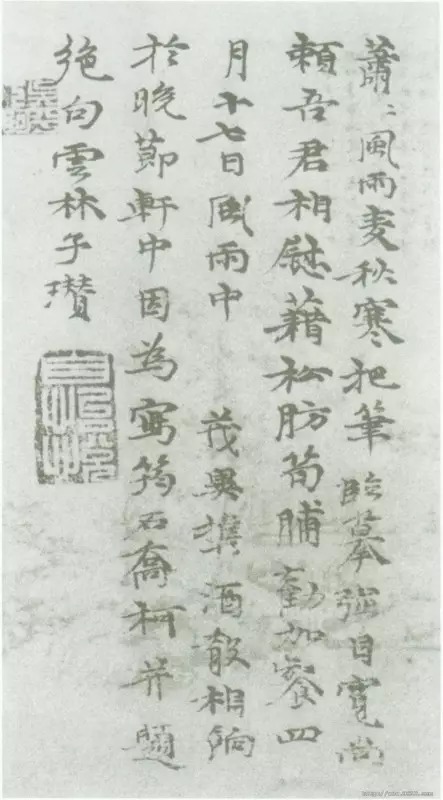 蕭〻風雨麦秋寒把筆臨摹强自寛尚
頼吾君相慰藉松肪筍脯勸加餐四
月十七日風雨中 茂異携酒殽相餉
於晚節軒中因為寫筠石喬柯并題
絶句雲林子瓚